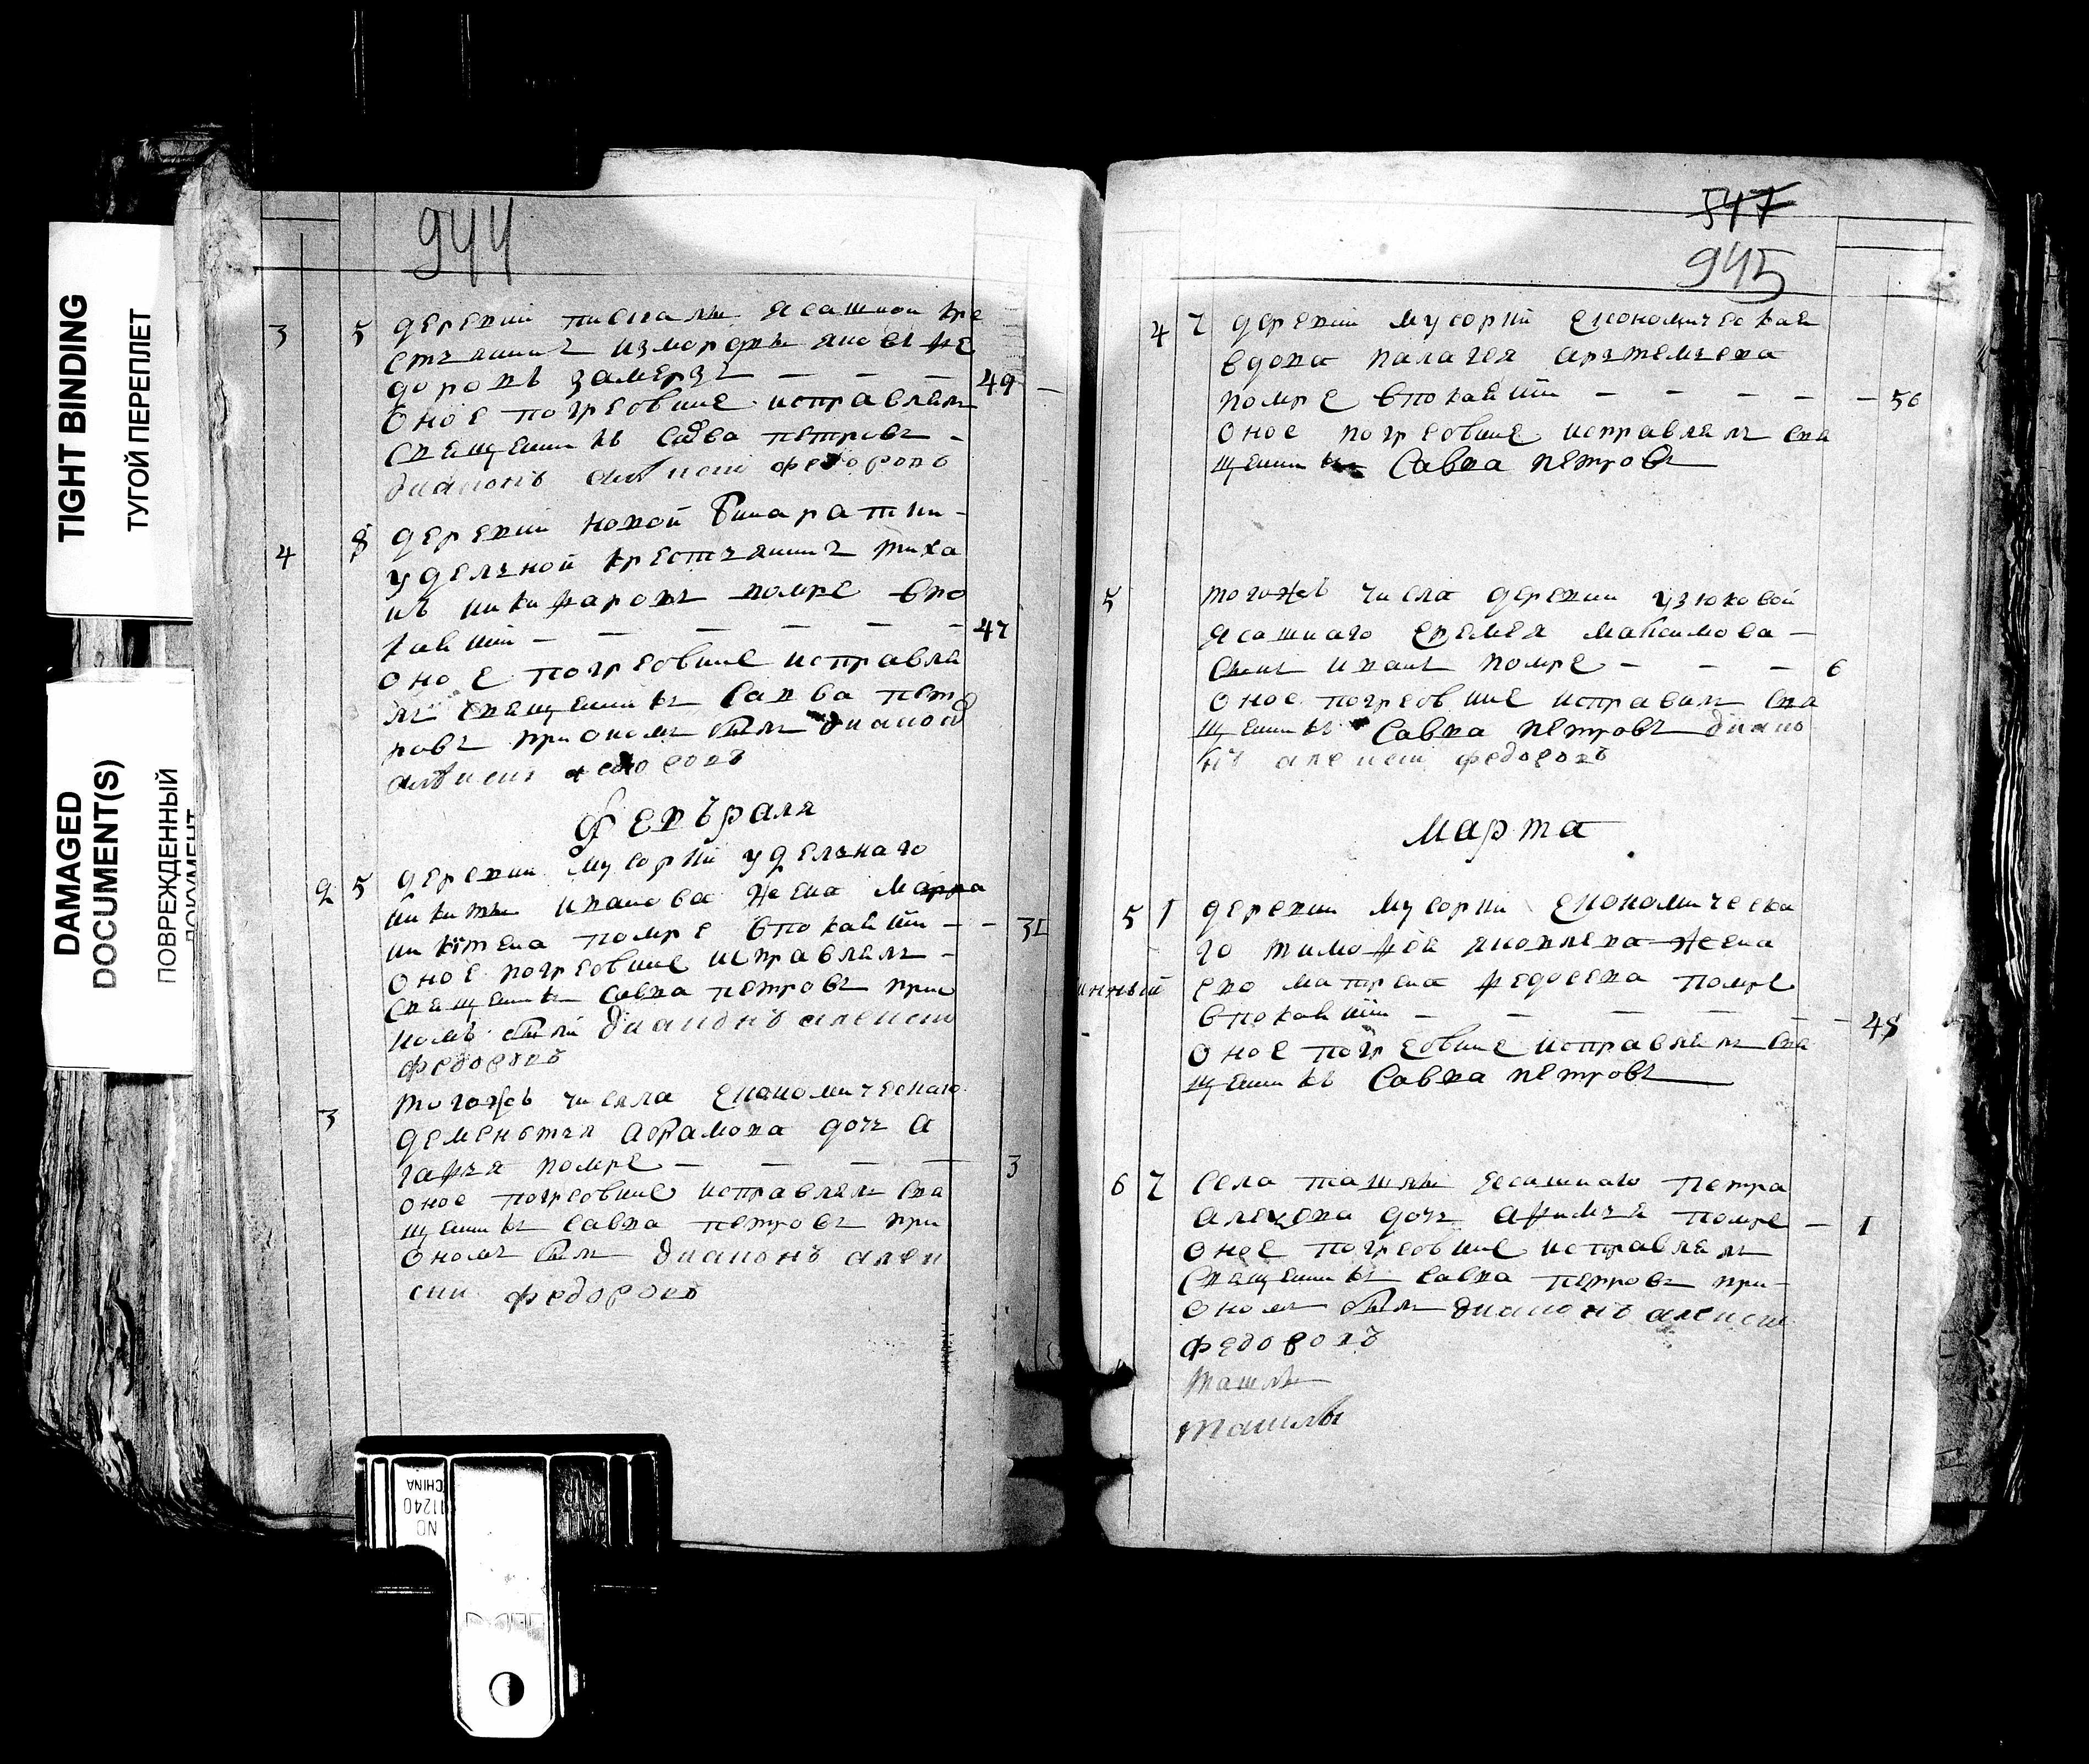 TIGHT BINDING
ТУГОЙ ПЕРЕПЛЕТ
DAMAGED
DOCUMENT(S)
ПОВРЕЖДЕННЫЙ
ДОКУМЕНТ
944
3 5 деревни писмали ясашной кре
стьянинъ измордвы яковъ фе
доровъ замерзъ — — — 49
Оное погребение исправлялъ
священникъ Савва петровъ
диаконъ алексей федоровъ
4 8 деревни новой Бинаратки
удельной крестьянинъ тиха
нъ никифаровъ помре впо
каянии — — — — — 47
оное погребение исправля
лъ священникъ Савва пет
ровъ приономъ былъ диакон
алексей федоровъ
Февъраля
2 5 деревни мусорки удельнаго
никиты иванова жена марфа
никитена помре впокаянии — — 31
оное погребение исправлялъ
священникъ Савва петровъ при
номъ былъ диаконъ алексей
федоровъ
3 тогожъ числа економическаго
дементья абрамова дочь а
гафья помре — — — — 3
оное погребение исправлялъ свя
щенникъ савва петровъ при
ономъ былъ диаконъ алек
сей федоровъ
547
945
4 7 деревни мусорки економическая
вдова палагея арътемьева
помре впокаянии — — — — — 56
оное погребение исправлялъ свя
щенникъ Савва петровъ
5 тогожъ числа деревни узюковой
ясашнаго еремея максимова —
сынъ иванъ помре — — — 6
оное погребение исправилъ свя
щенникъ Савва петровъ диако
нъ алексей федоровъ
Марта
5 1 деревни мусорки економическа
го тимофей яковлева жена
ево матрена федосева помре
впокаянии — — — — — 48
оное погребение исправлялъ свя
щенникъ Савва петровъ
6 7 Села ташлы ясашнаго петра
алексева дочь афимья помре — 1
оное погребение исправлялъ
священникъ савва петровъ при
ономъ былъ диаконъ алексей
федоровъ
ташлы
ташлы
NO
11240
CHINA